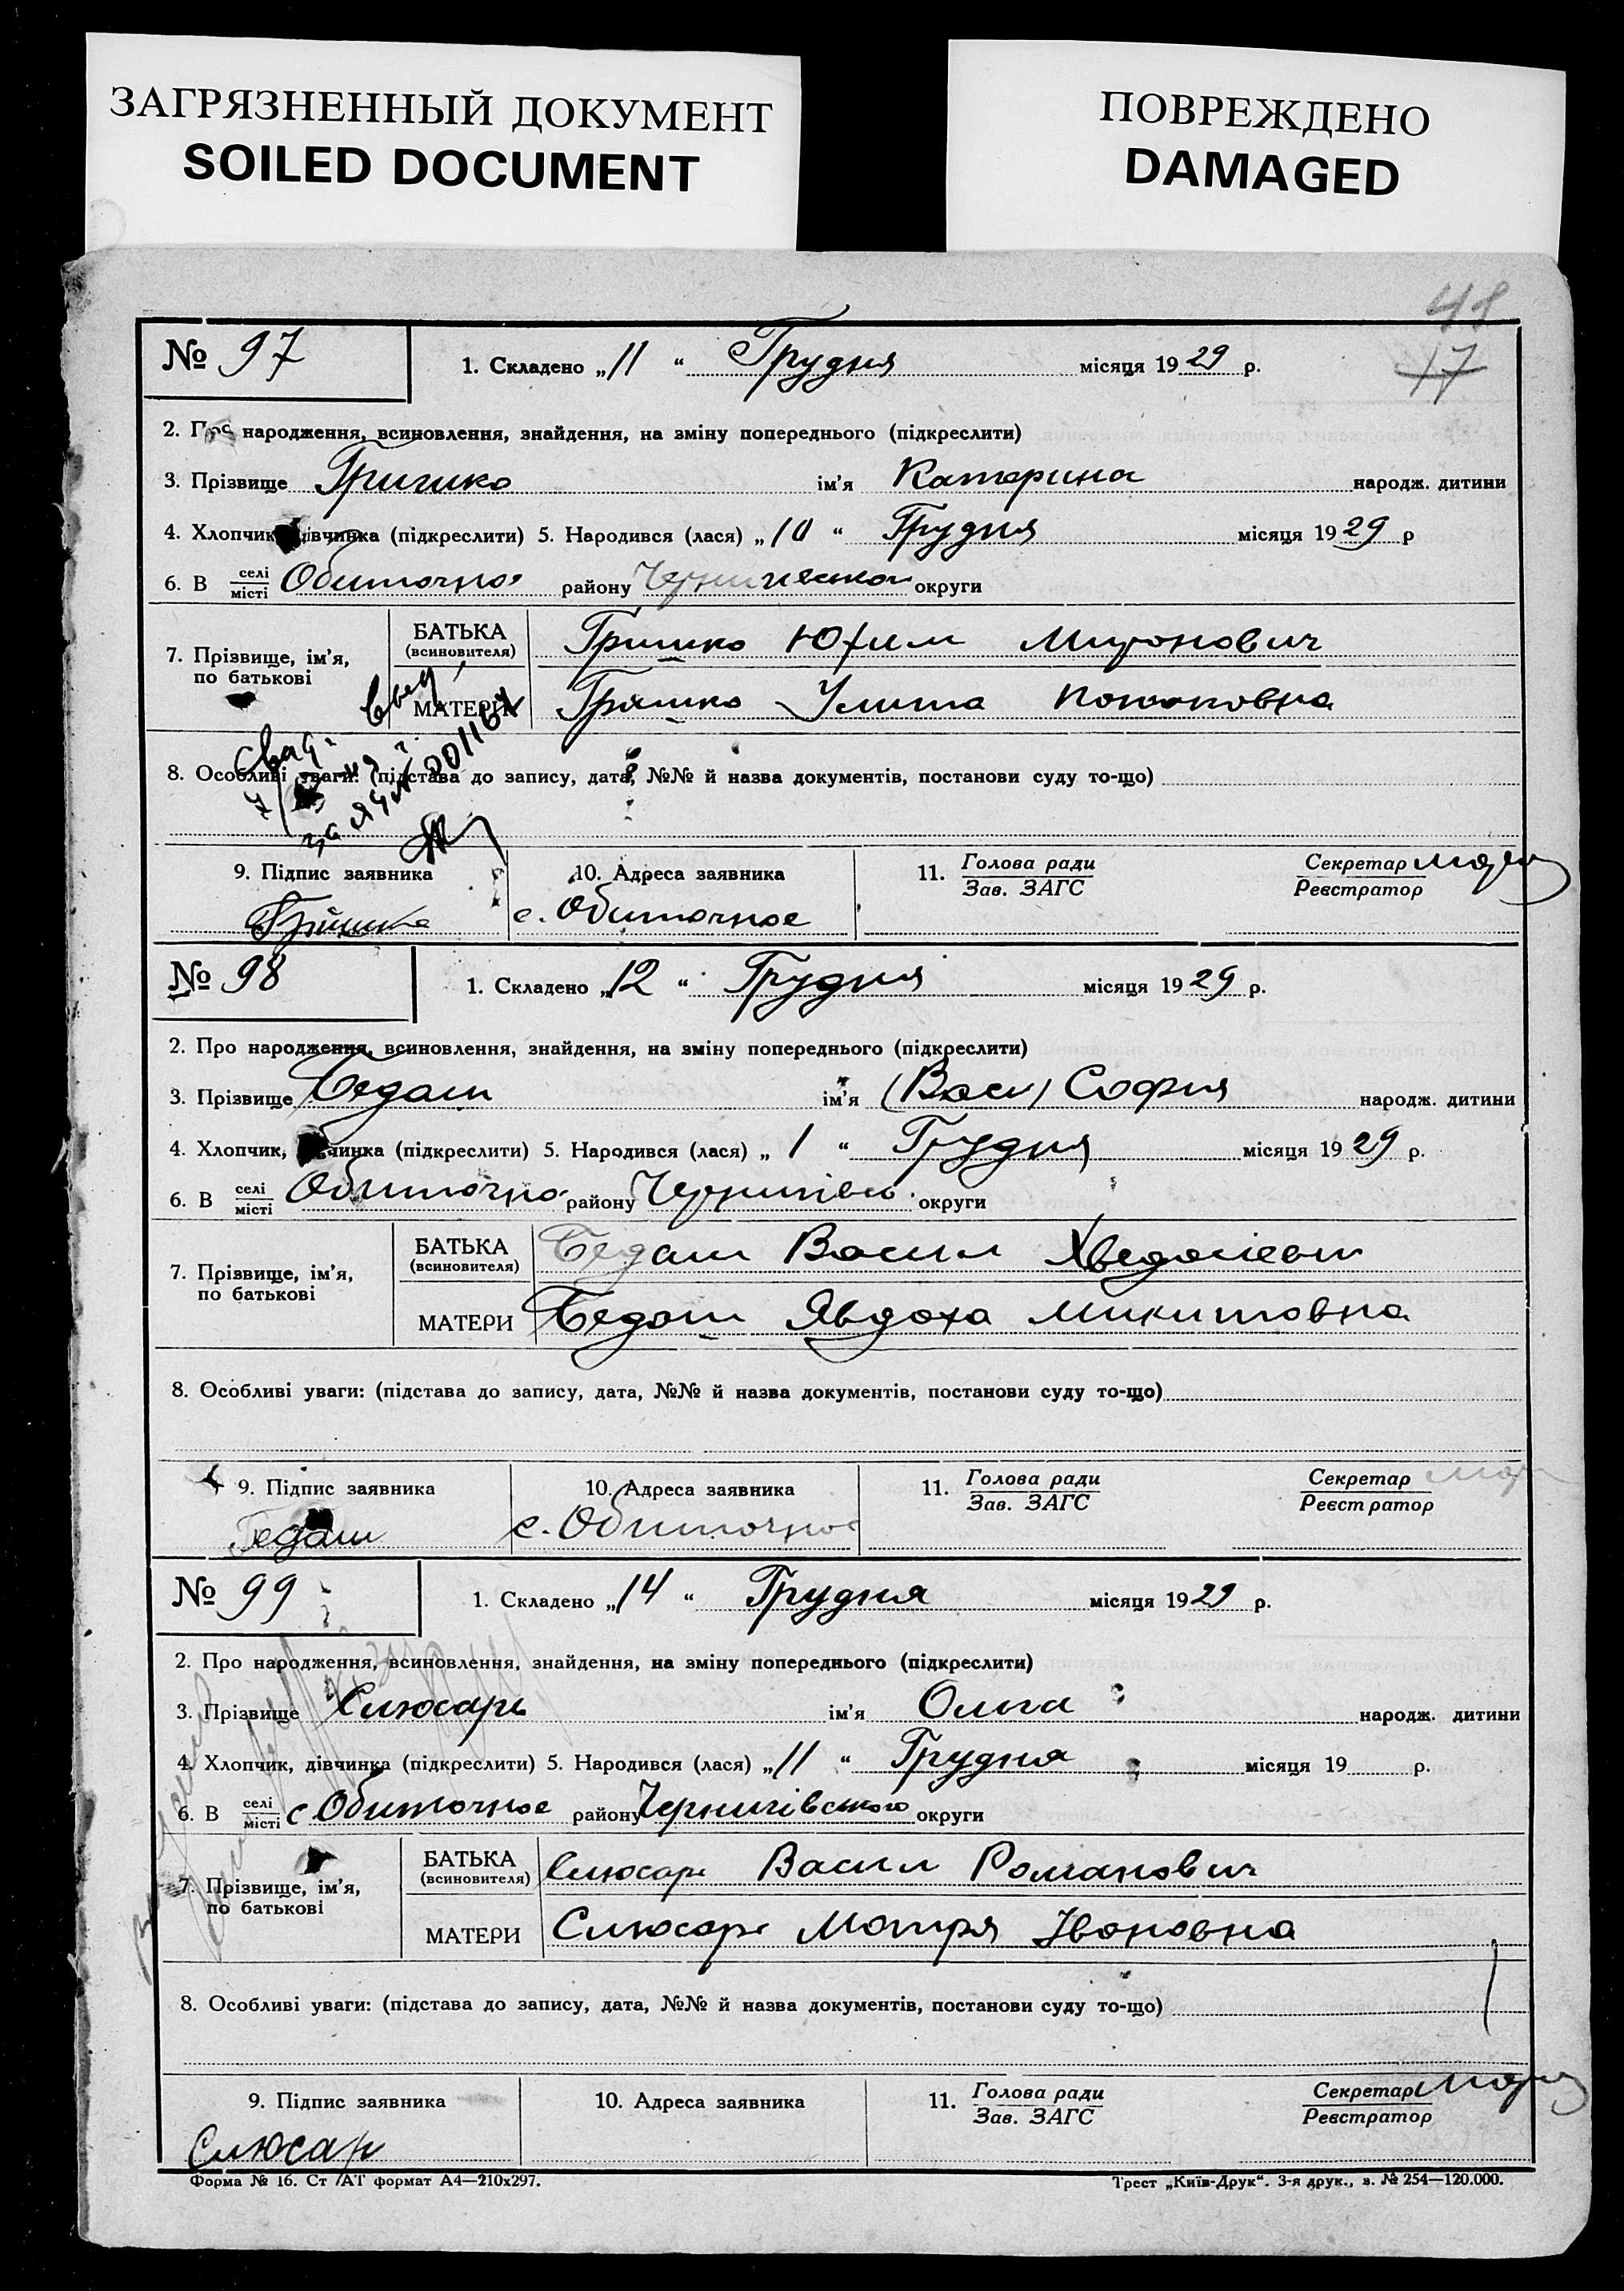 ЗАГРЯЗНЕННЫЙ ДОКУМЕНТ
SOILED DOCUMENT
ПОВРЕЖДЕНО
DAMAGED
17
№ 97 1. Складено „11“ Грудня місяця 1929 р.
2. Про народження, всиновлення, знайдення, на зміну попереднього (підкреслити)
3. Прізвище Гришко ім'я Катерина народж. дитини
4. Хлопчик дівчинка (підкреслити) 5. Народився (лася) „10“ Грудня місяця 1929 р
6. В селі/місті Обиточное району округи
7. Прізвище, ім'я, по батькові
БАТЬКА (всиновителя) Гришко Юхим Миронович
МАТЕРИ Гришко Улита
8. Особливі уваги: (підстава до запису, дата, №№ й назва документів, постанови суду то-що)
9. Підпис заявника 10. Адреса заявника 11. Голова ради/Зав. ЗАГС Секретар/Реєстратор
Гришко с. Обиточное
№ 98 1. Складено „12“ Грудня місяця 1929 р.
2. Про народження, всиновлення, знайдення, на зміну попереднього (підкреслити)
3. Прізвище Бедаш ім'я (Васи) София народж. дитини
4. Хлопчик, дівчинка (підкреслити) 5. Народився (лася) „1“ Грудня місяця 1929 р.
6. В селі/місті Обиточно району округи
7. Прізвище, ім'я, по батькові
БАТЬКА (всиновителя) Бедаш Васил
МАТЕРИ Бедаш Явдоха Микитовна
8. Особливі уваги: (підстава до запису, дата, №№ й назва документів, постанови суду то-що)
9. Підпис заявника 10. Адреса заявника 11. Голова ради/Зав. ЗАГС Секретар/Реєстратор
Бедаш с. Обиточное
№ 99 1. Складено „14“ Грудня місяця 1929 р.
2. Про народження, всиновлення, знайдення, на зміну попереднього (підкреслити)
3. Прізвище Слюсарь ім'я Ольга народж. дитини
4. Хлопчик, дівчинка (підкреслити) 5. Народився (лася) „11“ Грудня місяця 19 р.
6. В селі/місті с Обиточное району Чернигівського округи
7. Прізвище, ім'я, по батькові
БАТЬКА (всиновителя) Слюсарь Васил Романович
МАТЕРИ Слюсарь Мотря Івановна
8. Особливі уваги: (підстава до запису, дата, №№ й назва документів, постанови суду то-що)
9. Підпис заявника 10. Адреса заявника 11. Голова ради/Зав. ЗАГС Секретар/Реєстратор
Слюсар
Форма № 16. Ст АТ формат А4—210х297. Трест „Київ-Друк“. 3-я друк., з. № 254—120.000.